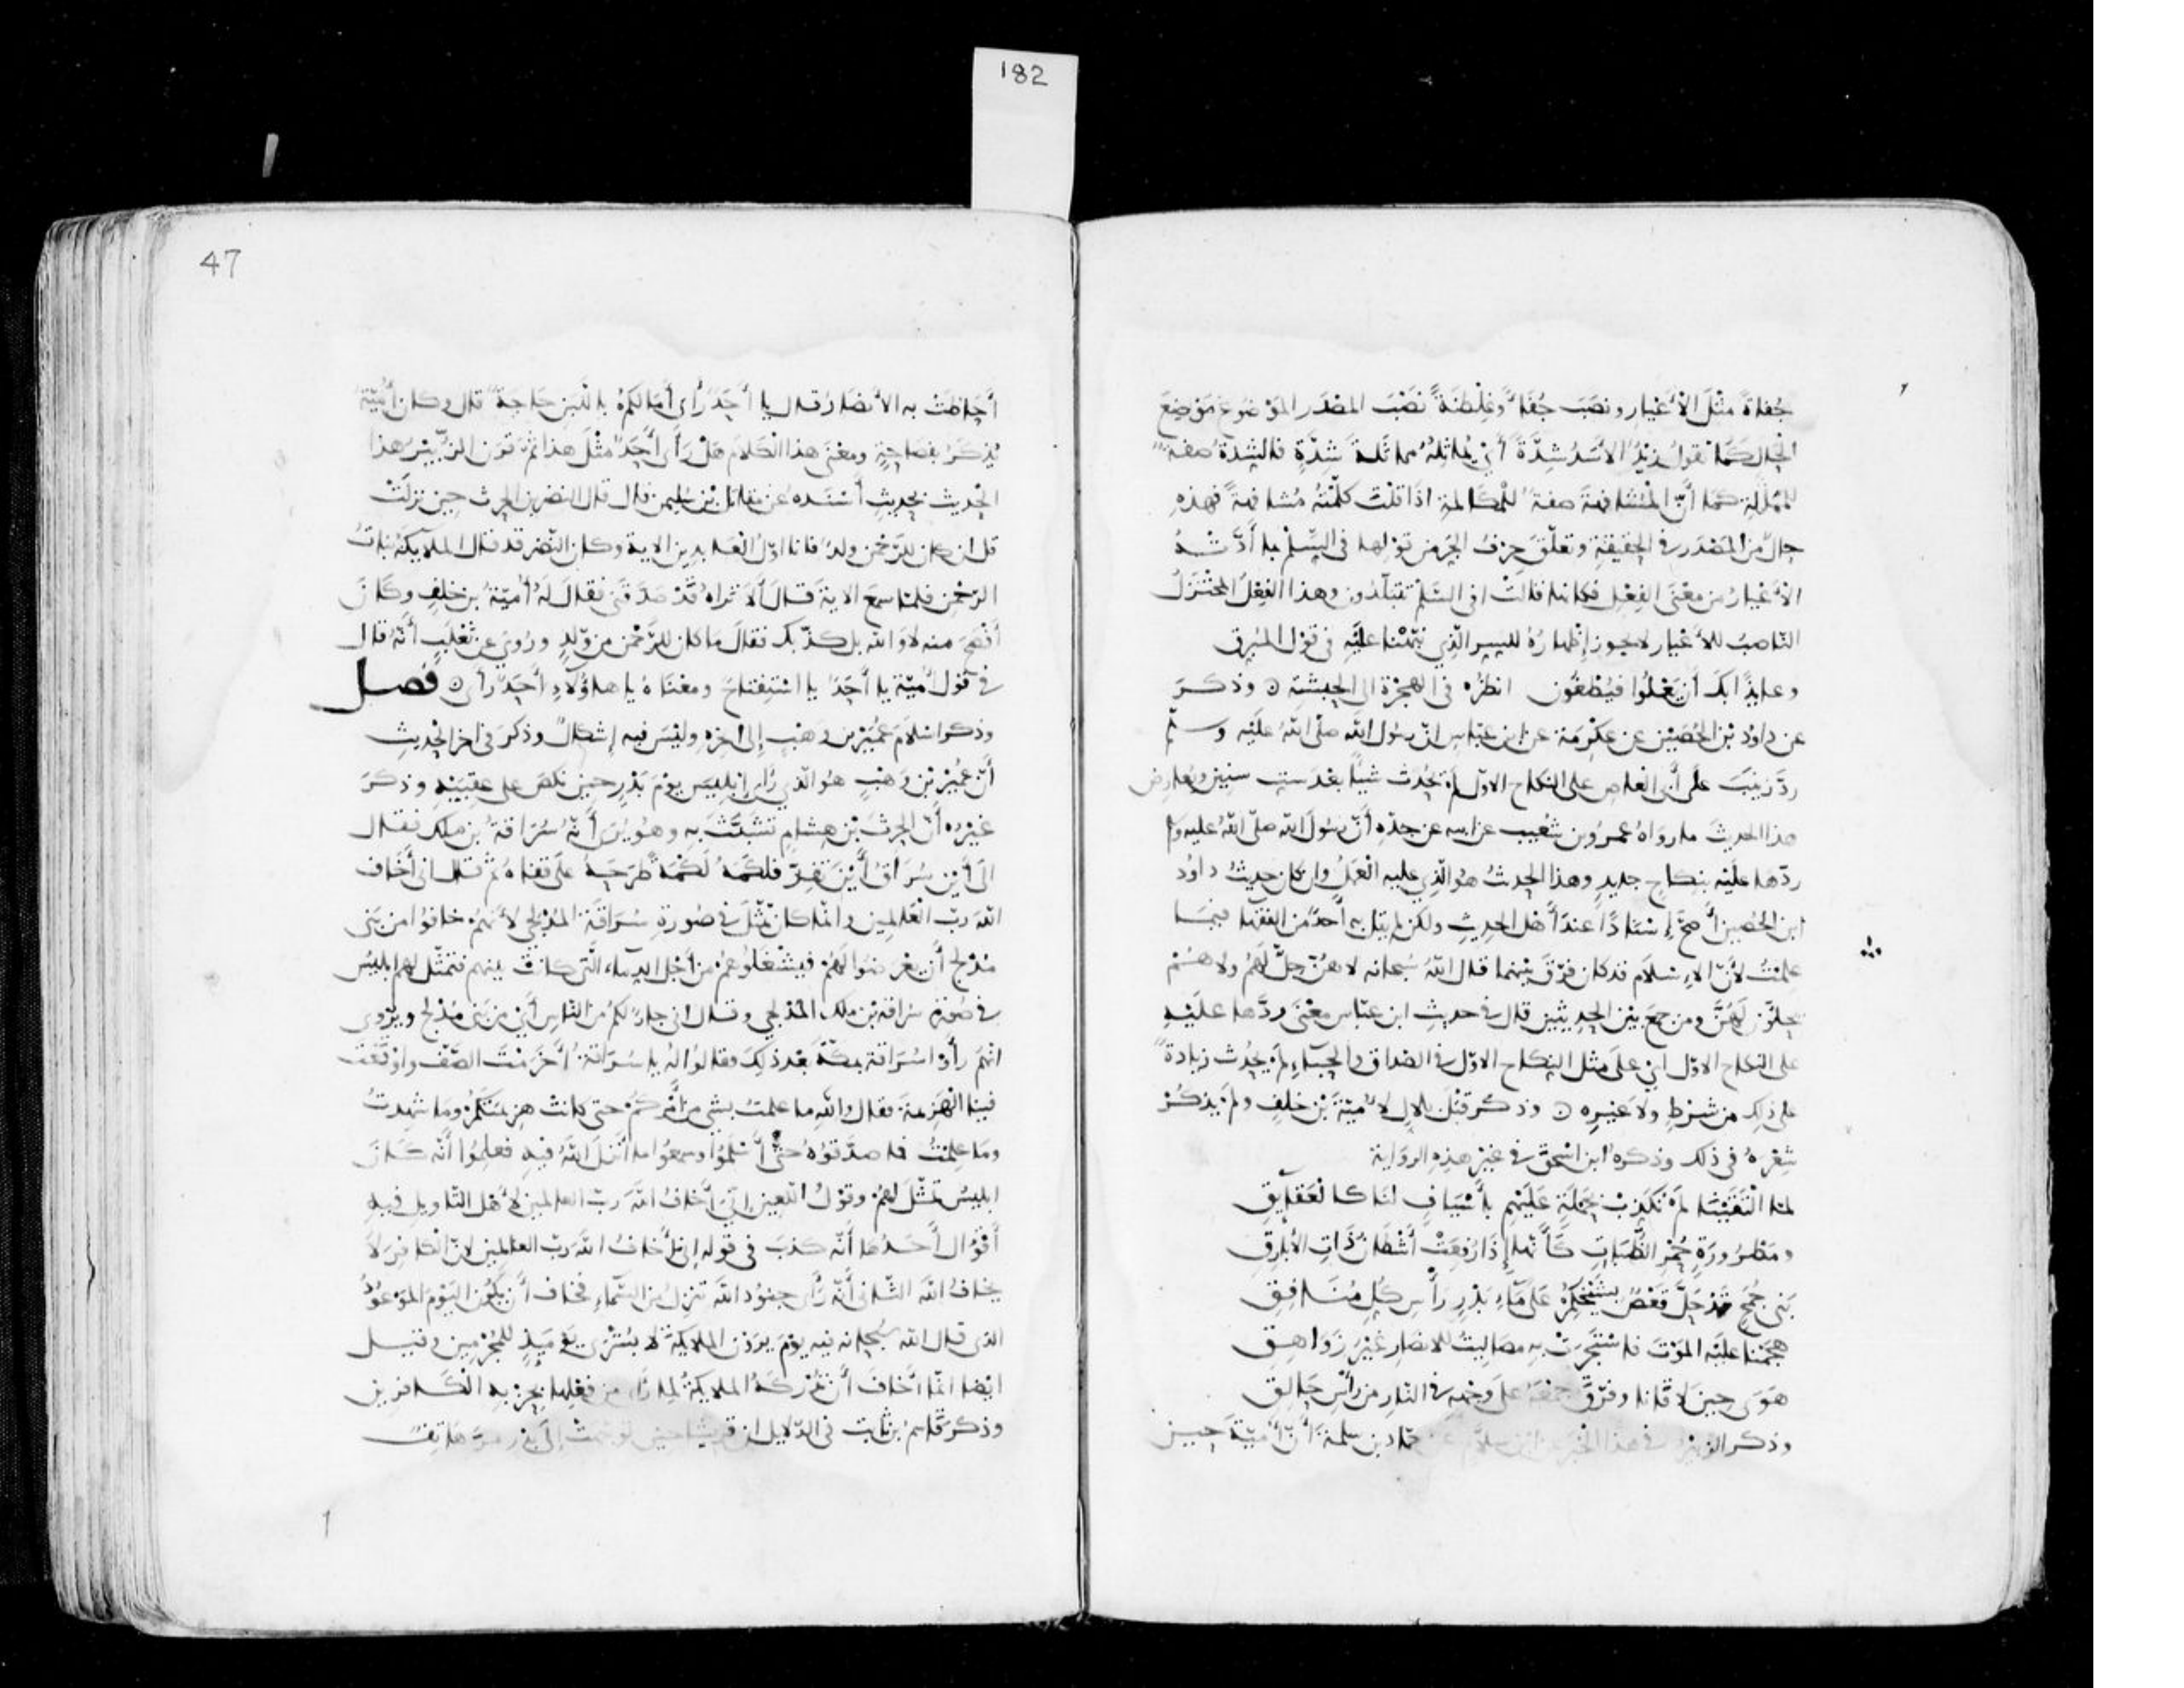 182
جُفاةً مثْلَ الأعْيارِ ونصَبَ جُفَاءً وغِلْظَةً نصْبَ المصْدَرِ الموْضوعِ موْضِعَ
الحال كَمَا تقولُ زيْدٌ الأسَدُ شِدَّةً أيْ يُماثِلُهُ مماثلةَ شِدَّةٍ فالشِدةُ صفةٌ
للمماثلة كمَا أنَّ المُشَافهةَ صفةٌ للمكالمة اذَا قلتَ كلّمْتُهُ مُشافهةً فهذهِ
حالٌ منَ المصْدَر في الحقيقةِ وتعلّقَ حرْفُ الجرّ من قوْلها في السِّلْم بما أدَّتْ بهُ
الأعْيارُ من معْنَى الفِعْلِ فكانها قالتْ افى السّلْم تتبلّدون وهذا الفِعْلُ المُخْتَزَلُ
النّاصبُ للأعْيارِ لا يجوز إظهارُهُ للسِّرِ الّذي نبّهْنا عليْهِ في قوْلِ المُبرق
وعايذًا بكَ أنْ يَعْلُوا فيُطْغُون انظرْه في الهجْرة الى الحبشةِ ٥ وذكرَ
عن داوُد بْنِ الحُصَيْنِ عن عكْرمَة عن ابن عبّاس انّ رسُول الله صلّى اللهُ عليْه وسلّم
ردّ زيْنبَ علَى أبى العاص على النكاح الاوّلِ لمْ يُحْدِث شيْأً بعْد ستِّ سنينَ ويُعارِض
هذا الحديثَ ما روَاهُ عمرُو بن شُعيب عن ابيه عن جدّهِ أنّ رسُولَ الله صلّى اللهُ عليه وسلم
ردّها عليْه بنكاحٍ جديدٍ وهذا الحديثُ هُو الّذي عليه العَمَلُ وإن كان حديثُ داوُد
ابن الحُصين أصحَّ إسْنادًا عندَ أهْل الحديثِ ولكنْ لم يقل به أحدٌ من الفقهاء فيمَا
علِمْتُ لأنّ الإسْلامَ قد كان فرّقَ بيْنهما قال اللهُ سُبحانه لا هُنّ حِلٌّ لهُمْ ولا هُمْ
يحِلّونَ لهُنَّ ومن جمعَ بيْن الحديثيْن قال فى حديثِ ابن عبّاس معْنَى ردَّها علَيْهِ
على النكاح الاوّل اىْ علَى مثل النِكاح الاوّل فى الصداق والحِباءِ لمْ يُحْدِث زيادةً
على ذلِك من شرْطٍ ولا غيرِه ٥ وذكر قتْلَ بلالٍ لأُميّةَ بْن خلفٍ ولمْ يذكُرْ
شِعْرهُ في ذلك وذكرهُ ابن اسْحقَ في غيْر هذِه الروَاية
لمّا الْتَقَيْنَا لمْ نُكَذِّبْ بحَمْلَةٍ عَلَيْهِم بأسْيَافٍ لنَا كالعَقَايِقِ
ومَطْرُورَةٍ حُمْرِ الظُّبَاتِ كأنّها إذَا رُفِعَتْ أشْطَانُ ذَاتِ الأبَارِقِ
بَنِى جُمَحٍ قدْ حَلَّ قعْصٌ بشَيْخِكُمْ عَلَى مَاءِ بَدْرٍ رَأْسِ كُلِّ مُنَافِقِ
هجَمْنا عليْهِ المَوْتَ فاسْتَجَرَتْ بهِ مصَالِيتُ للانصارِ غيْرُ زَوَاهِقِ
هَوَى حِينَ لاقَانا وفرّقَ جمْعَهُ علَى وجْهِهِ في النّارِ مِنْ رأْسِ حَالِقِ
وذكر الزبير في هذا الخبَر عن ابْن سلّام عن حمّاد بن سلمَةَ أنّ أميّةَ حينَ
47
أحَاطَتْ به الأنصَارُ قال يا أحَدٌ رأى أمَا لكمْ باللّبن حاجَةٌ قال وكان أُميّةُ
يُذكَرُ بفصاحةٍ ومعْنَى هذا الكلَام هَلْ رَأَى أحَدٌ مثْلَ هذا ثمّ قرَن الزّبيْرُ هذا
الحديث بحديثٍ أسْنَدهُ عن مقاتل بْن سُليمن قال قال النضر بن الحرث حينَ نزلَتْ
قل ان كان للرّحْمن ولدٌ فانا اوّلُ العابدين الاية وكان النّضر قد قال الملايكَةُ بناتُ
الرّحْمنِ فلمّا سمِعَ الايةَ قَالَ ألا تراهُ قَدْ صَدَّقَنِى فقالَ لهُ أميّةُ بن خلفٍ وكَانَ
أفْصَحَ منه لا والله بل كذّبك فقالَ ما كان للرّحْمن منْ ولَدٍ ورُوِىَ عن ثعْلَبٍ أنّهُ قال
في قوْل أُميّة يا أحَدٌ يا اسْتِفْتاحٌ ومعْنَاهُ يا هاؤُلاءِ أحَدٌ رأى ٥ فصل
وذكر اسْلامَ عُميْر بن وَهْبٍ إلى آخرِهِ وليْسَ فيهِ إشكالٌ وذكرَ في آخر الحديثِ
أنّ عُميْرَ بْن وَهْبٍ هُو الّذي رأى إبْليسَ يوْمَ بَدْرٍ حينَ نكصَ على عقبَيْهِ وذكرَ
غيْرُه أنّ الحرثَ بْن هِشامٍ تشَبّثَ بهِ وهُو يَرَى أنّهُ سُرَاقةُ بن ملك فقال
الَى أيْنَ سُرَاقُ أيْنَ تَفِرّ فلكَمَهُ لَكْمَةً طرَحَهُ علَى قفاهُ ثمّ قال انى أخَاف
اللهَ ربّ العَالمين وانّما كان تمثّلَ في صُورةِ سُرَاقةَ المُدْلجىِّ لأنّهمْ خافُوا من بَنى
مُدْلج أن يعْرضُوا لهُمْ فيشْغلُوهُمْ من أجْل الدِماءِ الّتى كانتْ بينهم فتمَثّل لهم إبليسُ
في صُورَةِ سُراقة بْن ملك المُدْلجي وقال انى جارٌ لكُمْ من النّاس أىْ من بَنى مُدْلج ويُرْوى
انّهُمْ رأَوْا سُرَاقةَ بمكّةَ بعْد ذلِكَ فقالُوا لهُ يا سُرَاقةُ أخَرَمْتَ الصّفّ واوْقَعْتَ
فينا الهَزيمةَ فقال واللهِ ما علمتُ بشىءٍ منْ أمْركمْ حتى كانتْ هزيمَتكُمْ وما شهِدتُ
ومَا علِمْتُ فما صدّقوُهُ حتّى أسْلمُوا وسمعُوا ما أنْزلَ اللهُ فيهِ فعلِمُوا أنّه كَانَ
ابليسُ تمَثّلَ لهُمْ وقوْلُ اللّعين إنّى أخَافُ اللهَ ربّ العالمين لأهْل التّاويل فيهِ
أقْوَال أحَدُها أنّه كذبَ في قوله إنى أخَافُ اللهَ ربّ العالمين لانّ الكافِرَ لا
يخافُ الله الثّانى أنّه رأى جنوُد الله تنْزِلُ منَ السّماءِ فخاف أنْ يَكُون اليَوْمَ المَوْعُودَ
الذى قال الله سُبْحانه فيه يوْمَ يرَوْن الملايكةَ لا بُشْرَى يوْمَيذٍ للمُجْرمِين وقيل
ايضا انّما خَافَ أنْ تُدْركَهُ الملايكةُ لما رَأى من فعْلها بحِزْبهِ الكَافرين
وذكرَ قَاسمُ بن ثابت في الدّلايل ان قريْشا حين توجّهتْ إلَى بدْر مرَّ هاتِفٌ